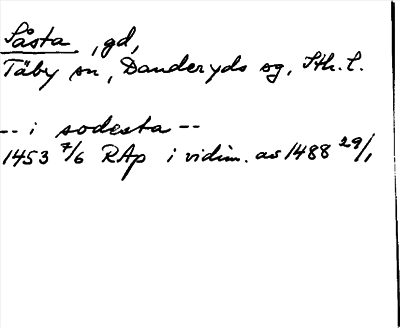 Såsta, gd,
Täby sn, Danderyds sg, Sth. l.
-- i sodesta --
1453 7/6 RAp i vidim. av 1488 29/1